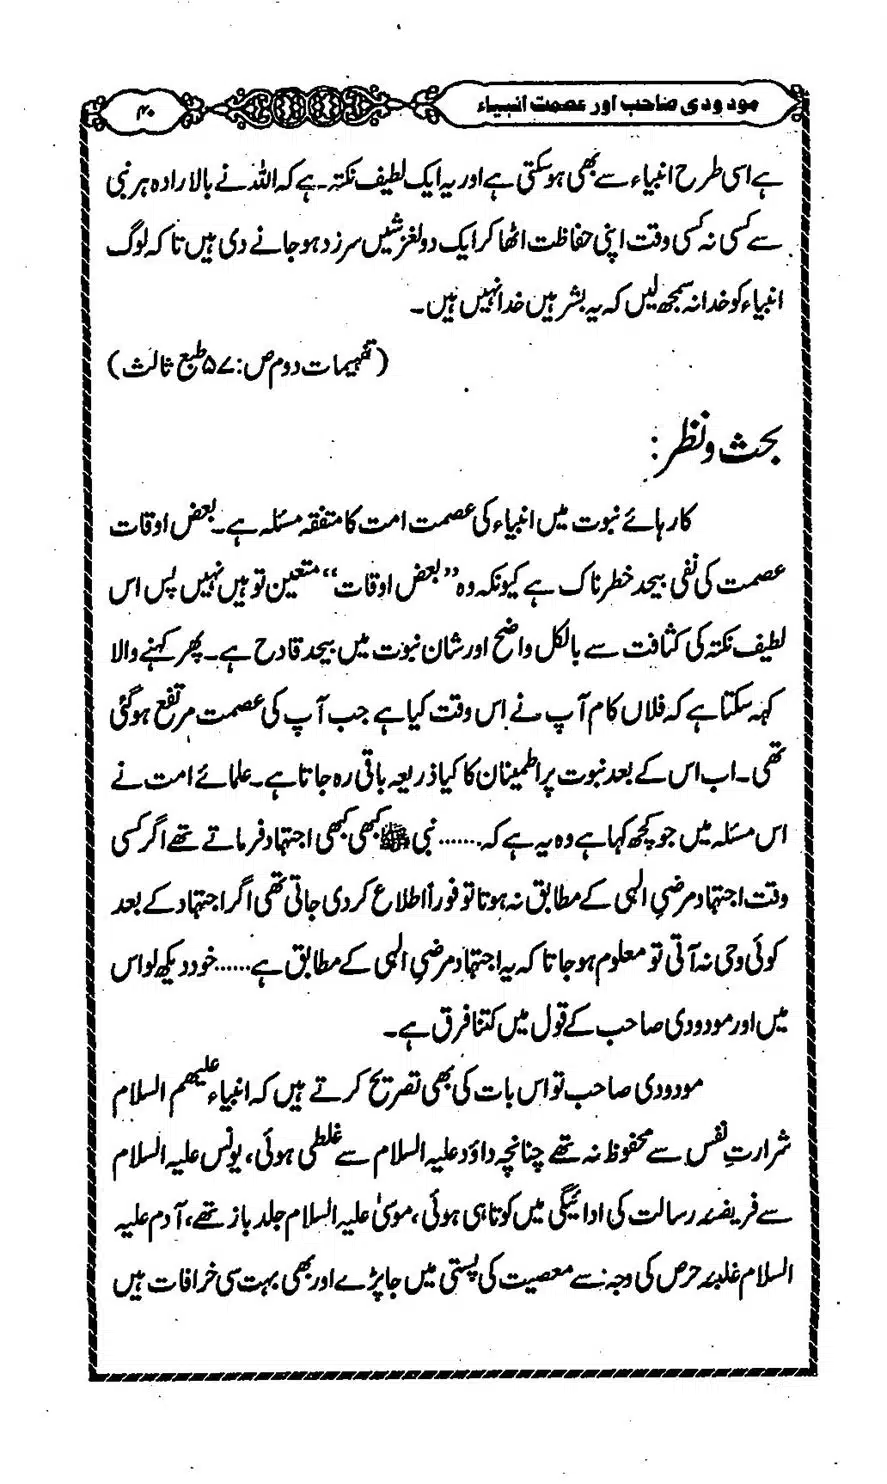 مودودی صاحب اور عصمت انبیاء
۴۰
ہے اسی طرح انبیاء سے بھی ہوسکتی ہے اور یہ ایک لطیف نکتہ۔ ہے کہ اللہ نے بالارادہ ہر نبی
سے کسی نہ کسی وقت اپنی حفاظت اٹھا کر ایک دو لغزشیں سرزد ہوجانے دی ہیں تا کہ لوگ
انبیاء کو خدا نہ سمجھ لیں کہ یہ بشر ہیں خدا نہیں ہیں۔
(تفہیمات دوم ص: ۵۷ طبع ثالث)
بحث و نظر:
کارہائے نبوت میں انبیاء کی عصمت امت کا متفقہ مسئلہ ہے۔ بعض اوقات
عصمت کی نفی بیحد خطرناک ہے کیونکہ وہ ”بعض اوقات“ متعین تو ہیں نہیں پس اس
لطیف نکتہ کی کثافت سے بالکل واضح اور شان نبوت میں بیحد قادح ہے۔ پھر کہنے والا
کہہ سکتا ہے کہ فلاں کام آپ نے اس وقت کیا ہے جب آپ کی عصمت مرتفع ہوگئی
تھی۔ اب اس کے بعد نبوت پر اطمینان کا کیا ذریعہ باقی رہ جاتا ہے۔ علمائے امت نے
اس مسئلہ میں جو کچھ کہا ہے وہ یہ ہے کہ....... نبی ﷺ کبھی کبھی اجتہاد فرماتے تھے اگر کسی
وقت اجتہاد مرضیِ الٰہی کے مطابق نہ ہوتا تو فوراً اطلاع کر دی جاتی تھی اگر اجتہاد کے بعد
کوئی وحی نہ آتی تو معلوم ہوجاتا کہ یہ اجتہاد مرضیِ الٰہی کے مطابق ہے...... خود دیکھ لو اس
میں اور مودودی صاحب کے قول میں کتنا فرق ہے۔
مودودی صاحب تو اس بات کی بھی تصریح کرتے ہیں کہ انبیاء علیہم السلام
شرارتِ نفس سے محفوظ نہ تھے چنانچہ داؤد علیہ السلام سے غلطی ہوئی، یونس علیہ السلام
سے فریضۂ رسالت کی ادائیگی میں کوتاہی ہوئی، موسیٰ علیہ السلام جلد باز تھے، آدم علیہ
السلام غلبۂ حرص کی وجہ سے معصیت کی پستی میں جا پڑے اور بھی بہت سی خرافات ہیں